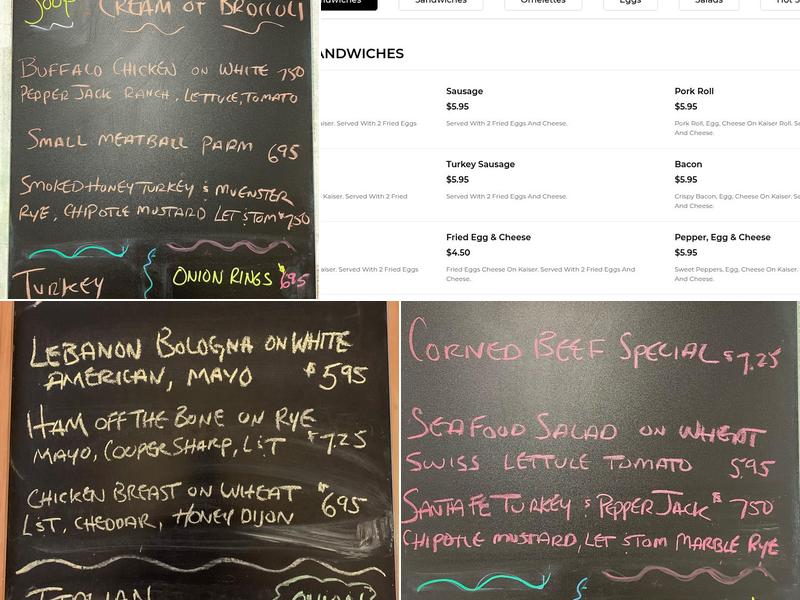 Soup. CREAM OF BROCCOLI
BUFFALO CHICKEN ON WHITE 750
PEPPER JACK RANCH, LETTUCE, TOMATO
SMALL MEATBALL PARM 695
SMOKED HONEY TURKEY & MUENSTER
RYE, CHIPOTLE MUSTARD LET & TOM $750
TURKEY
ONION RINGS $695
Sandwiches
Omelettes
Eggs
Salads
ANDWICHES
Sausage
$5.95
Served With 2 Fried Eggs And Cheese.
Pork Roll
$5.95
Pork Roll, Egg, Cheese On Kaiser Roll.
And Cheese.
aiser. Served With 2 Fried Eggs
Turkey Sausage
$5.95
Served With 2 Fried Eggs And Cheese.
Bacon
$5.95
Crispy Bacon, Egg, Cheese On Kaiser.
And Cheese.
Kaiser. Served With 2 Fried
Fried Egg & Cheese
$4.50
Fried Eggs Cheese On Kaiser. Served With 2 Fried Eggs And
Cheese.
Pepper, Egg & Cheese
$5.95
Sweet Peppers, Egg, Cheese On Kaiser.
And Cheese.
aiser. Served With 2 Fried Eggs
LEBANON BOLOGNA ON WHITE
AMERICAN, MAYO $595
HAM OFF THE BONE ON RYE
MAYO, COOPER SHARP, L&T $7.25
CHICKEN BREAST ON WHEAT $695
L&T, CHEDDAR, HONEY DIJON
ITALIAN
CORNED BEEF SPECIAL $7.25
SEAFOOD SALAD ON WHEAT
SWISS LETTUCE TOMATO 595
SANTA FE TURKEY & PEPPER JACK $750
CHIPOTLE MUSTARD, LET & TOM MARBLE RYE